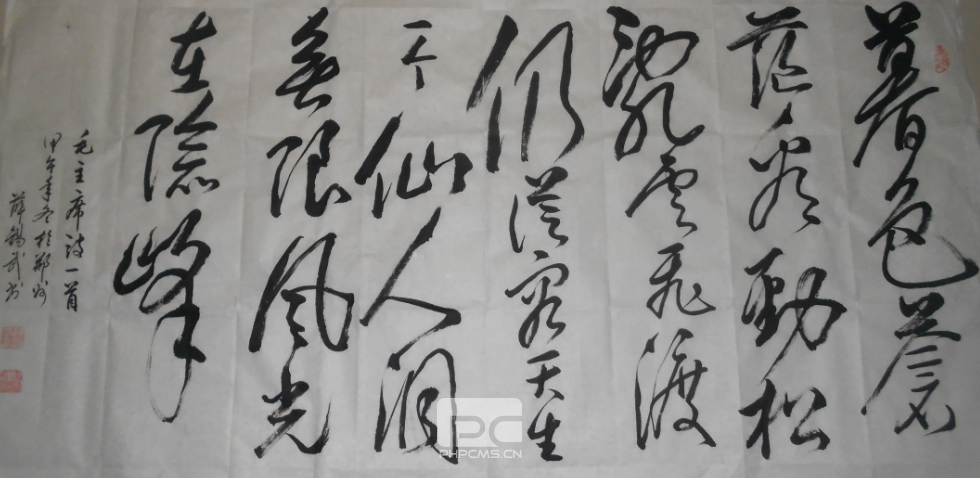 暮色苍
茫看劲松
乱云飞渡
仍从容天生
一个仙人洞
无限风光
在险峰
毛主席诗一首
甲午年冬于郑州
薛锡武书
PHPCMS.CN